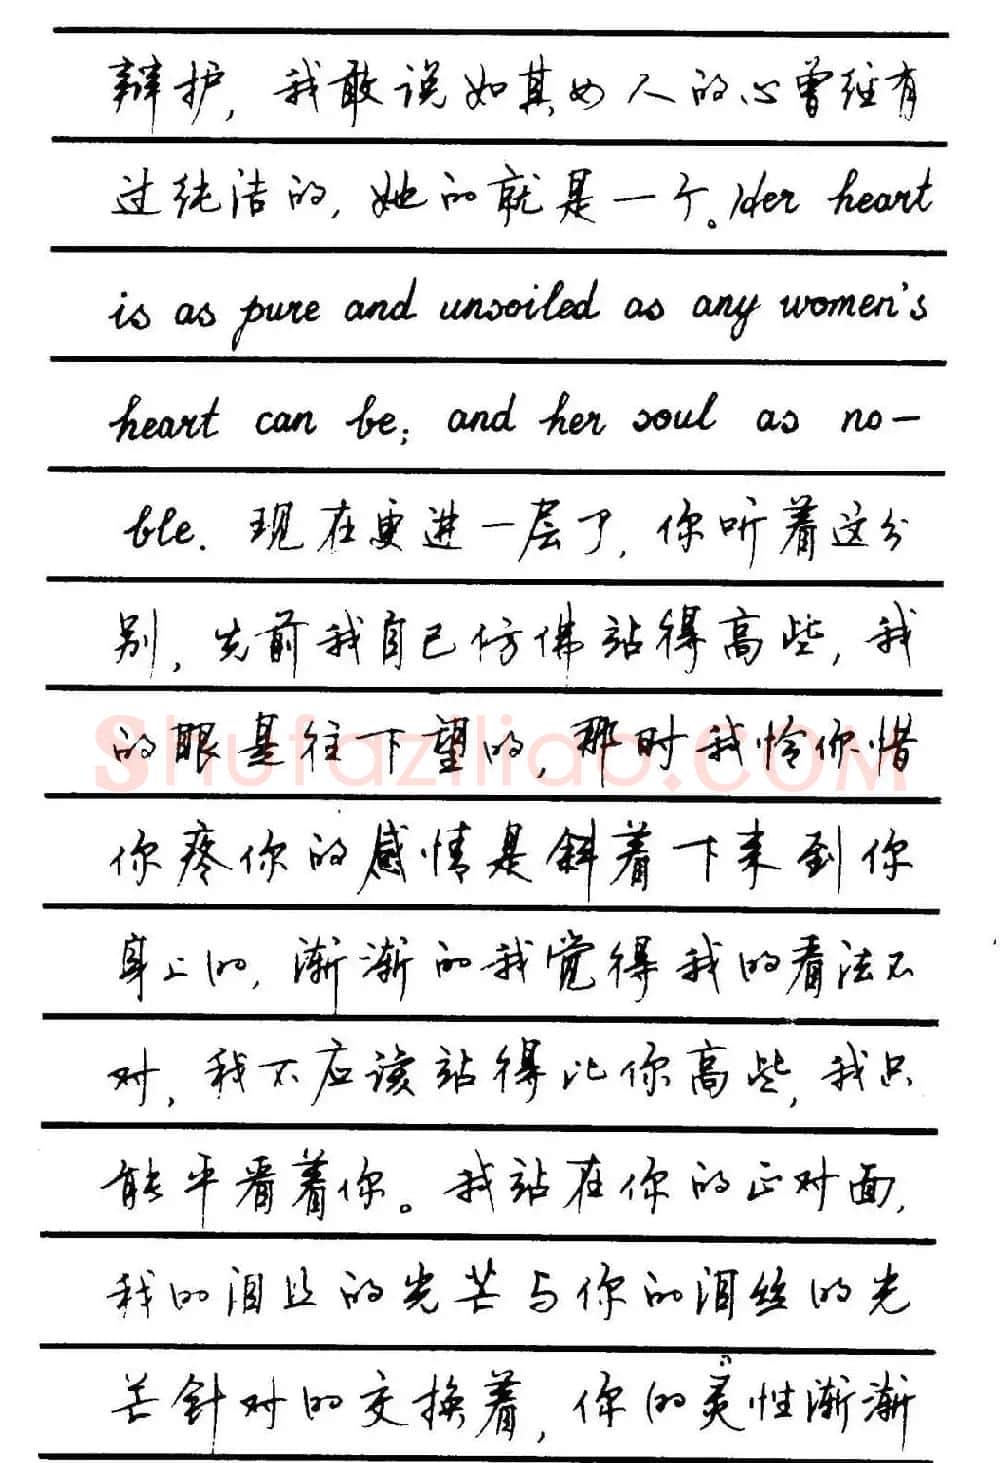 辩护，我敢说如其女人的心曾经有
过纯洁的，她的就是一个。Her heart
is as pure and unsoiled as any women's
heart can be; and her soul as no-
ble. 现在更进一层了，你听着这分
别，先前我自己仿佛站得高些，我
的眼是往下望的，那时我怜你惜
你疼你的感情是斜着下来到你
身上的，渐渐的我觉得我的看法不
对，我不应该站得比你高些，我只
能平看着你。我站在你的正对面，
我的泪丝的光芒与你的泪丝的光
芒针对的交换着，你的灵性渐渐
Shufaziliao.COM